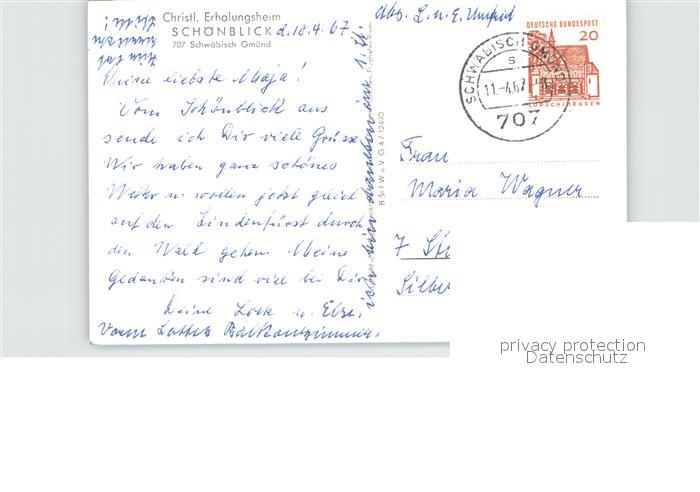 Christl. Erholungsheim
SCHÖNBLICK
707 Schwäbisch Gmünd
d. 10.4.67.
Meine liebste Maja!
Vom Schönblick aus
sende ich Dir viele Grüsse
Wir haben ganz schönes
Wetter u. wollen jetzt gleich
auf den Lindenfürst durch
den Wald gehen. Meine
Gedanken sind viel bei Dir
Deine Lotte u. Else.
Vorm Lottes Balkonzimmer,
ich bin daneben im
B St f W u V G 4 / 12490
Abs. L. u. E.
DEUTSCHE BUNDESPOST
20
LORSCH/HESSEN
SCHWÄBISCH GMÜND
11.-4.67
707
Frau
Maria Wagner
7
privacy protection
Datenschutz